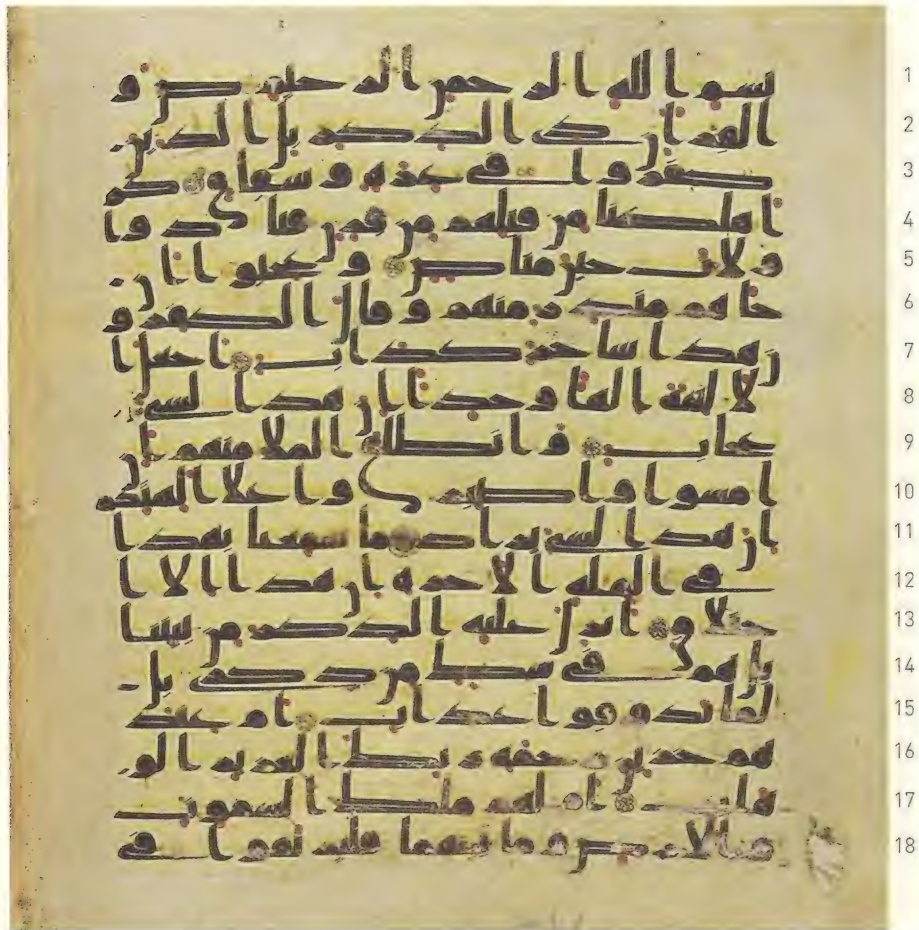 بسم الله الرحمن الرحيم ص و 1
القران ذي الذكر بل الذين 2
كفروا في عزة وشقاق كم 3
اهلكنا من قبلهم من قرن فنادوا 4
ولات حين مناص وعجبوا ان 5
جاهم منذر منهم وقال الكفرو 6
ن هذا ساحر كذاب اجعل ا 7
لالهة الها وحدا ان هذا لشي 8
عجاب وانطلق الملا منهم ان 9
امشوا واصبروا على الهتكم 10
ان هذا لشي يراد ما سمعنا بهذا 11
في الملة الاخرة ان هذا الا ا 12
ختلاق انزل عليه الذكر من بيننا 13
بل هم في شك من ذكري بل 14
لما يذوقوا عذاب ام عند 15
هم خزين رحمة ربك العزيز الو 16
هاب ام لهم ملك السموت 17
والارض وما بينهما فليرتقوا في 18